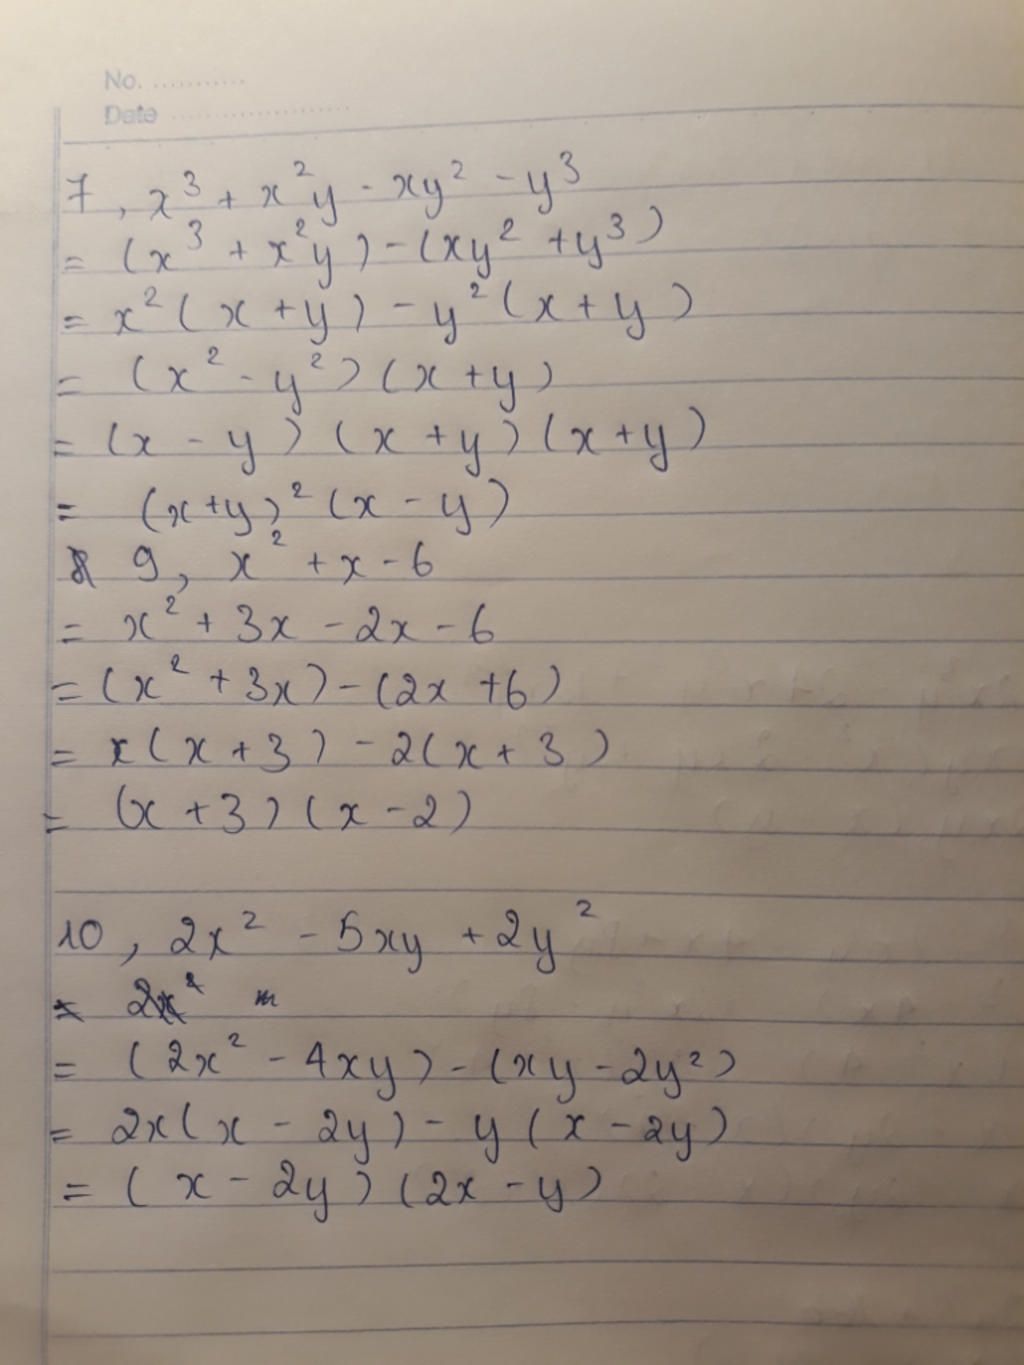 No. ...........
Date ......................
7, x³ + x²y - xy² - y³
= (x³ + x²y) - (xy² + y³)
= x²(x + y) - y²(x + y)
= (x² - y²)(x + y)
= (x - y)(x + y)(x + y)
= (x+y)²(x - y)
9, x² + x - 6
= x² + 3x - 2x - 6
= (x² + 3x) - (2x + 6)
= x(x + 3) - 2(x + 3)
= (x + 3)(x - 2)
10, 2x² - 5xy + 2y²
= 2x²
= (2x² - 4xy) - (xy - 2y²)
= 2x(x - 2y) - y(x - 2y)
= (x - 2y)(2x - y)